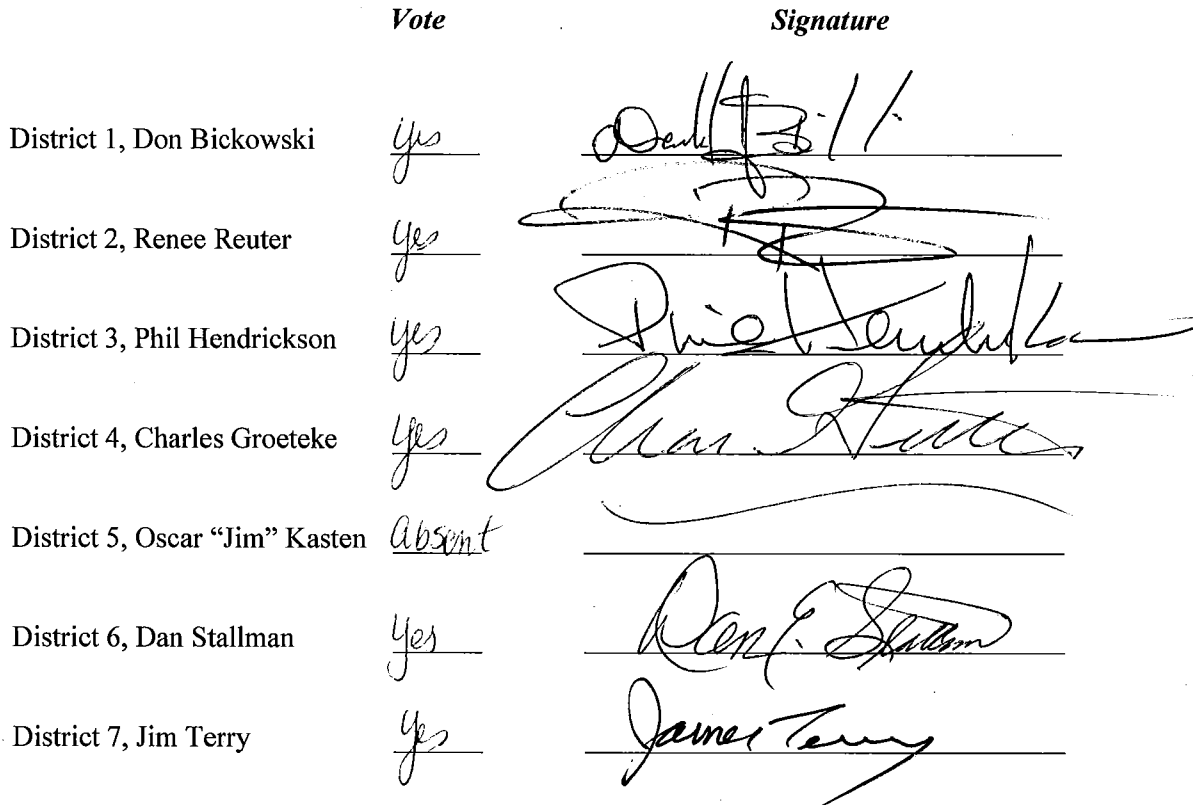 Vote Signature
District 1, Don Bickowski yes
District 2, Renee Reuter yes
District 3, Phil Hendrickson yes Phil Hendrickson
District 4, Charles Groeteke yes
District 5, Oscar “Jim” Kasten absent
District 6, Dan Stallman yes Dan E. Stallman
District 7, Jim Terry yes James Terry